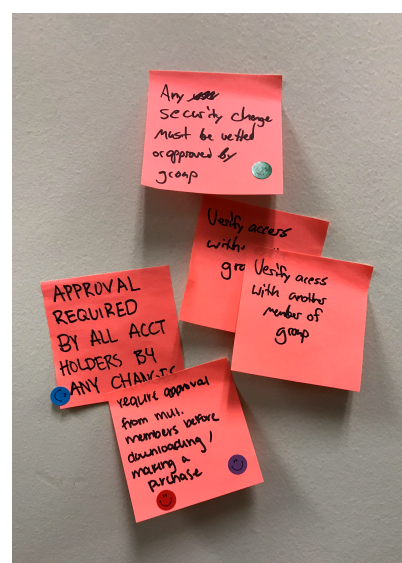 Any
security change
must be vetted
or approved by
group
Verify access
with
gro
Verify acess
with another
member of
group
APPROVAL
REQUIRED
BY ALL ACCT
HOLDERS B4
ANY CHANGES
require approval
from mul.
members before
downloading/
making a
purchase